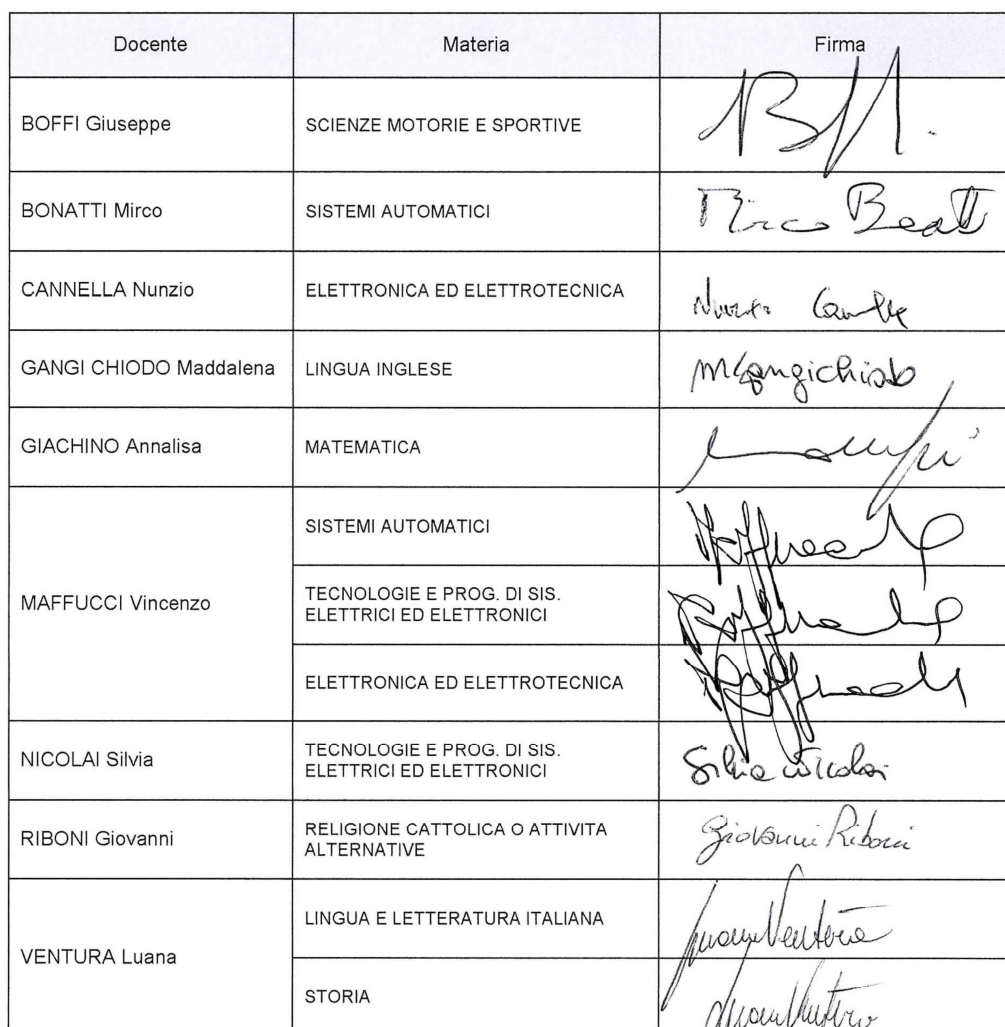 Docente Materia Firma
BOFFI Giuseppe SCIENZE MOTORIE E SPORTIVE
BONATTI Mirco SISTEMI AUTOMATICI Mirco
CANNELLA Nunzio ELETTRONICA ED ELETTROTECNICA
GANGI CHIODO Maddalena LINGUA INGLESE
GIACHINO Annalisa MATEMATICA
MAFFUCCI Vincenzo SISTEMI AUTOMATICI
TECNOLOGIE E PROG. DI SIS.
ELETTRICI ED ELETTRONICI
ELETTRONICA ED ELETTROTECNICA
NICOLAI Silvia TECNOLOGIE E PROG. DI SIS.
ELETTRICI ED ELETTRONICI Silvia Nicolai
RIBONI Giovanni RELIGIONE CATTOLICA O ATTIVITA
ALTERNATIVE Giovanni Riboni
VENTURA Luana LINGUA E LETTERATURA ITALIANA
STORIA